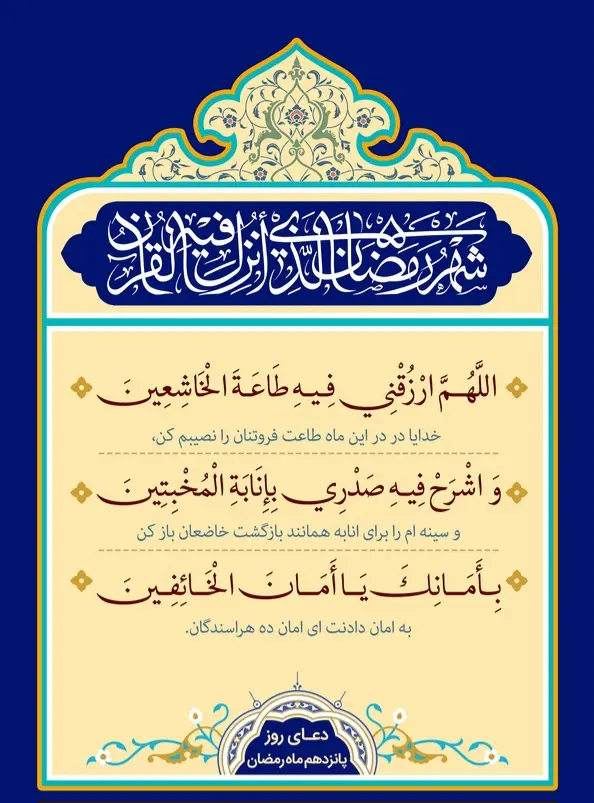 شهر رمضان الذي أنزل فيه القرآن
اللَّهُمَّ ارْزُقْنِي فِيهِ طَاعَةَ الْخَاشِعِينَ
خدایا در در این ماه طاعت فروتنان را نصیبم کن،
وَ اشْرَحْ فِيهِ صَدْرِي بِإِنَابَةِ الْمُخْبِتِينَ
و سینه ام را برای انابه همانند بازگشت خاضعان باز کن
بِأَمَانِكَ يَا أَمَانَ الْخَائِفِينَ
به امان دادنت ای امان ده هراسندگان.
دعای روز
پانزدهم ماه رمضان